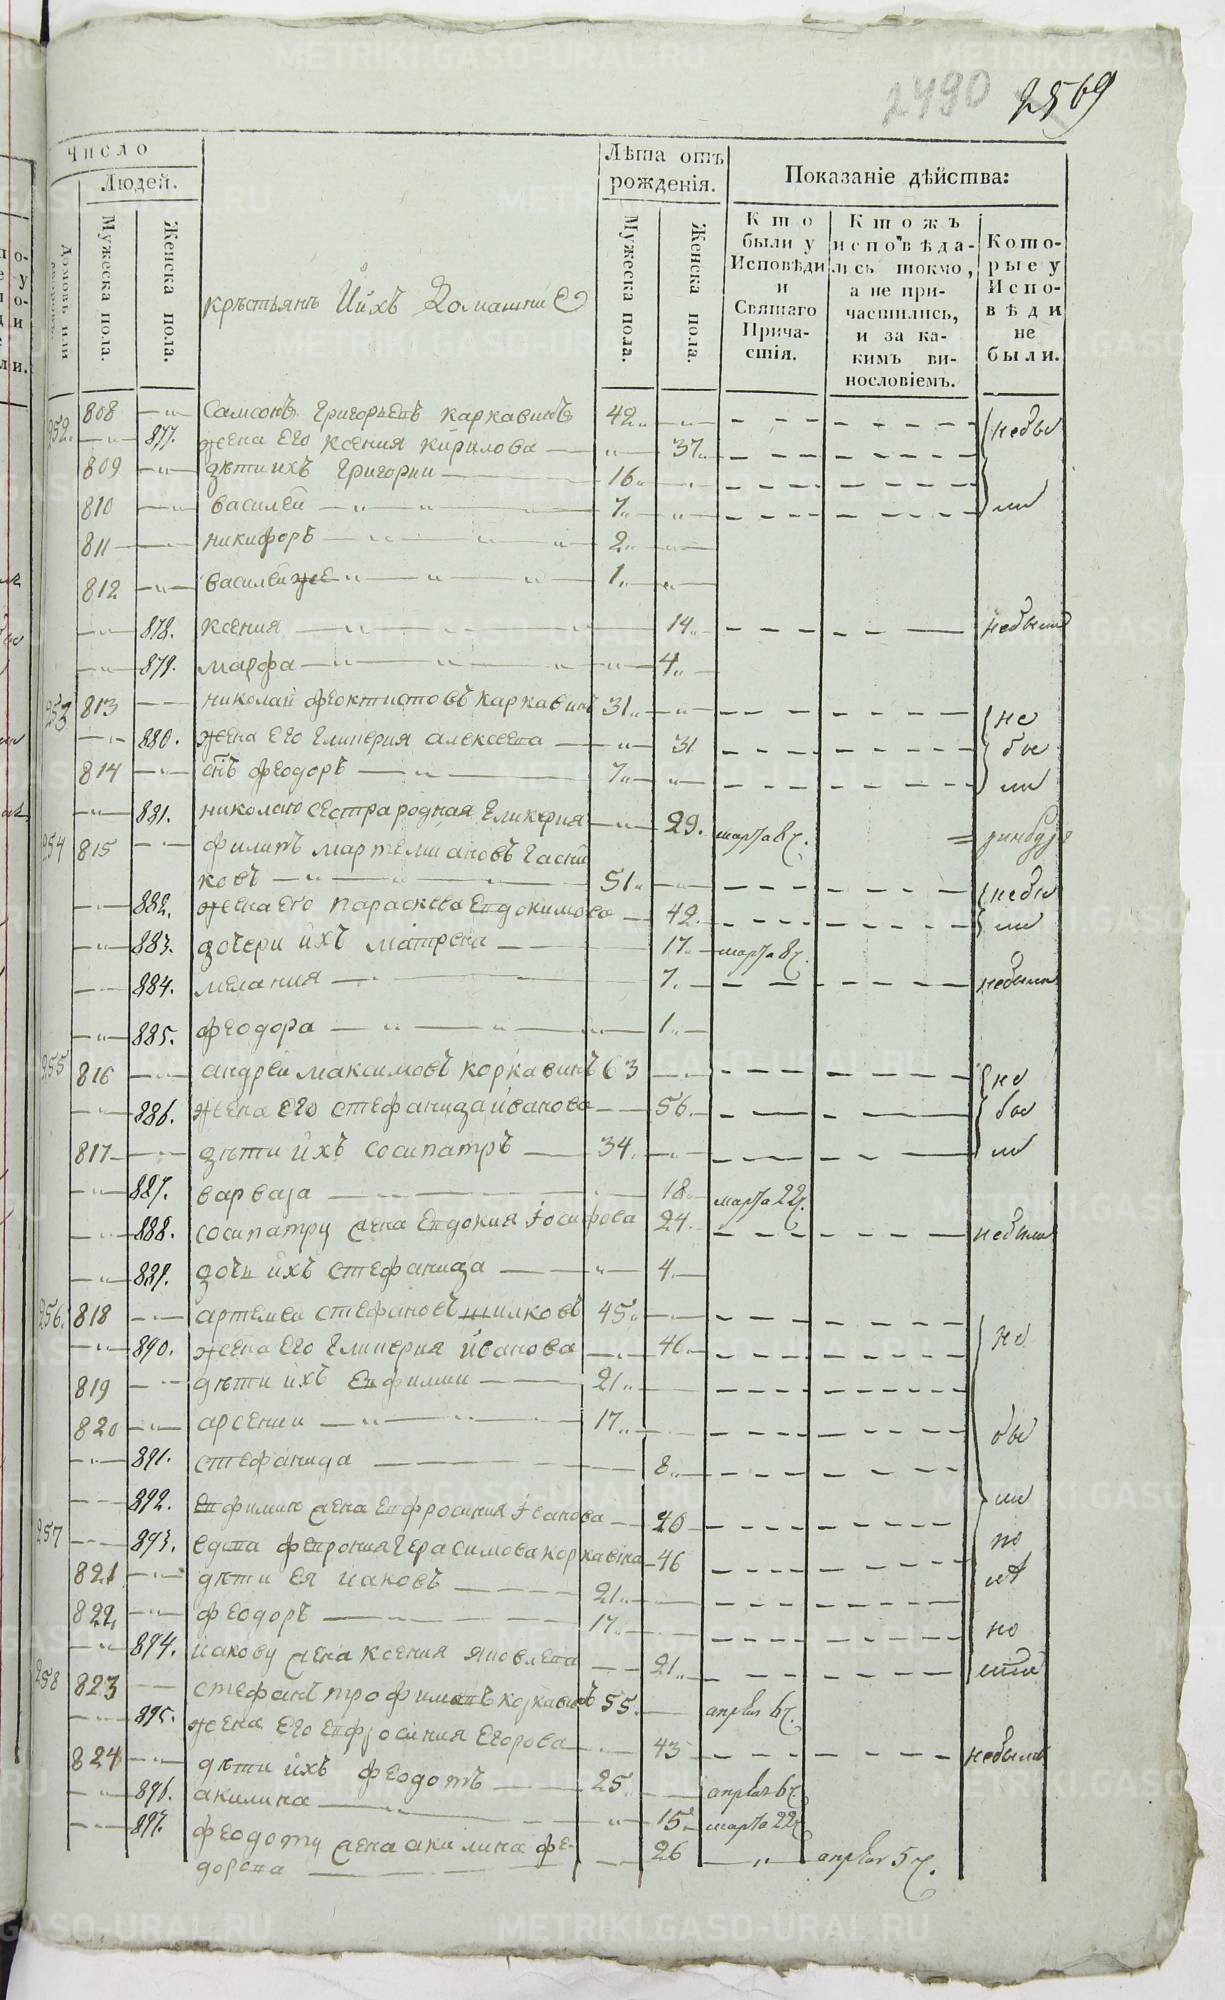 2490 2569
Число
Людей.
Лѣта отъ рожденія.
Показаніе дѣйства:
Домовъ или
Мужеска пола.
Женска пола.
Мужеска пола.
Женска пола.
Кто были у Исповѣди и Святаго Причастія.
Ктожъ исповѣдались токмо, а не причастились, и за какимъ винословіемъ.
Которые у Исповѣди не были.
крѣстьянъ Ийхъ Домашнии
252. 808 Самсонъ Григорьевъ каркавинъ 42 небы
877. жена его ксения кирилова 37
809 дѣти ихъ Григории 16 ли
810 василей 7
811 никифоръ 2
812 василей же 1
878. ксения 14 небыла
879. марфа 4
253 813 николай феоктистовъ каркавинъ 31 не
880. жена его Гликерия алексеева 31 бы
814 снъ феодоръ 7 ли
881. николаю сестра родная Гликерия 29. марта 8ч.
254 815 филипъ мартемиановъ
ковъ 51 небы
882. жена его параскева Евдокимова 42 ли
883. дочери ихъ матрена 17 марта 8ч.
884. мелания 7. небыла
885. феодора 1
255 816 андрей максимовъ коркавинъ 63 не
886. жена его стефанида иванова 56 бы
817 дѣти ихъ сосипатръ 34. ли
887. варвара 18 марта 22ч.
888. сосипатру жена Евдокия Иосифова 24 небыла
889. дочь ихъ стефанида 4
256. 818 артемей стефановъ шилковъ 45 не
890. жена его Гликерия иванова 46
819 дѣти ихъ Евфимии 21
820 арсении 17 бы
891. стефанида 8
892. Евфимию жена Евфросиния Иванова 20 ли
257 893. вдова феврония Герасимова коркавина 46 по
821 дѣти Ея иаковъ 21
822 феодоръ 17 но
894. иакову жена ксения Яковлева 21
258 823 стефанъ трофимовъ коркавинъ 55. апреля 6ч.
895. жена его Евфросиния Егорова 43 небыла
824 дѣти ихъ феодотъ 25 апреля 6ч.
896. акилина 15 марта 22ч
897. феодоту жена акилина фе-
дорова 26 апреля 5ч.